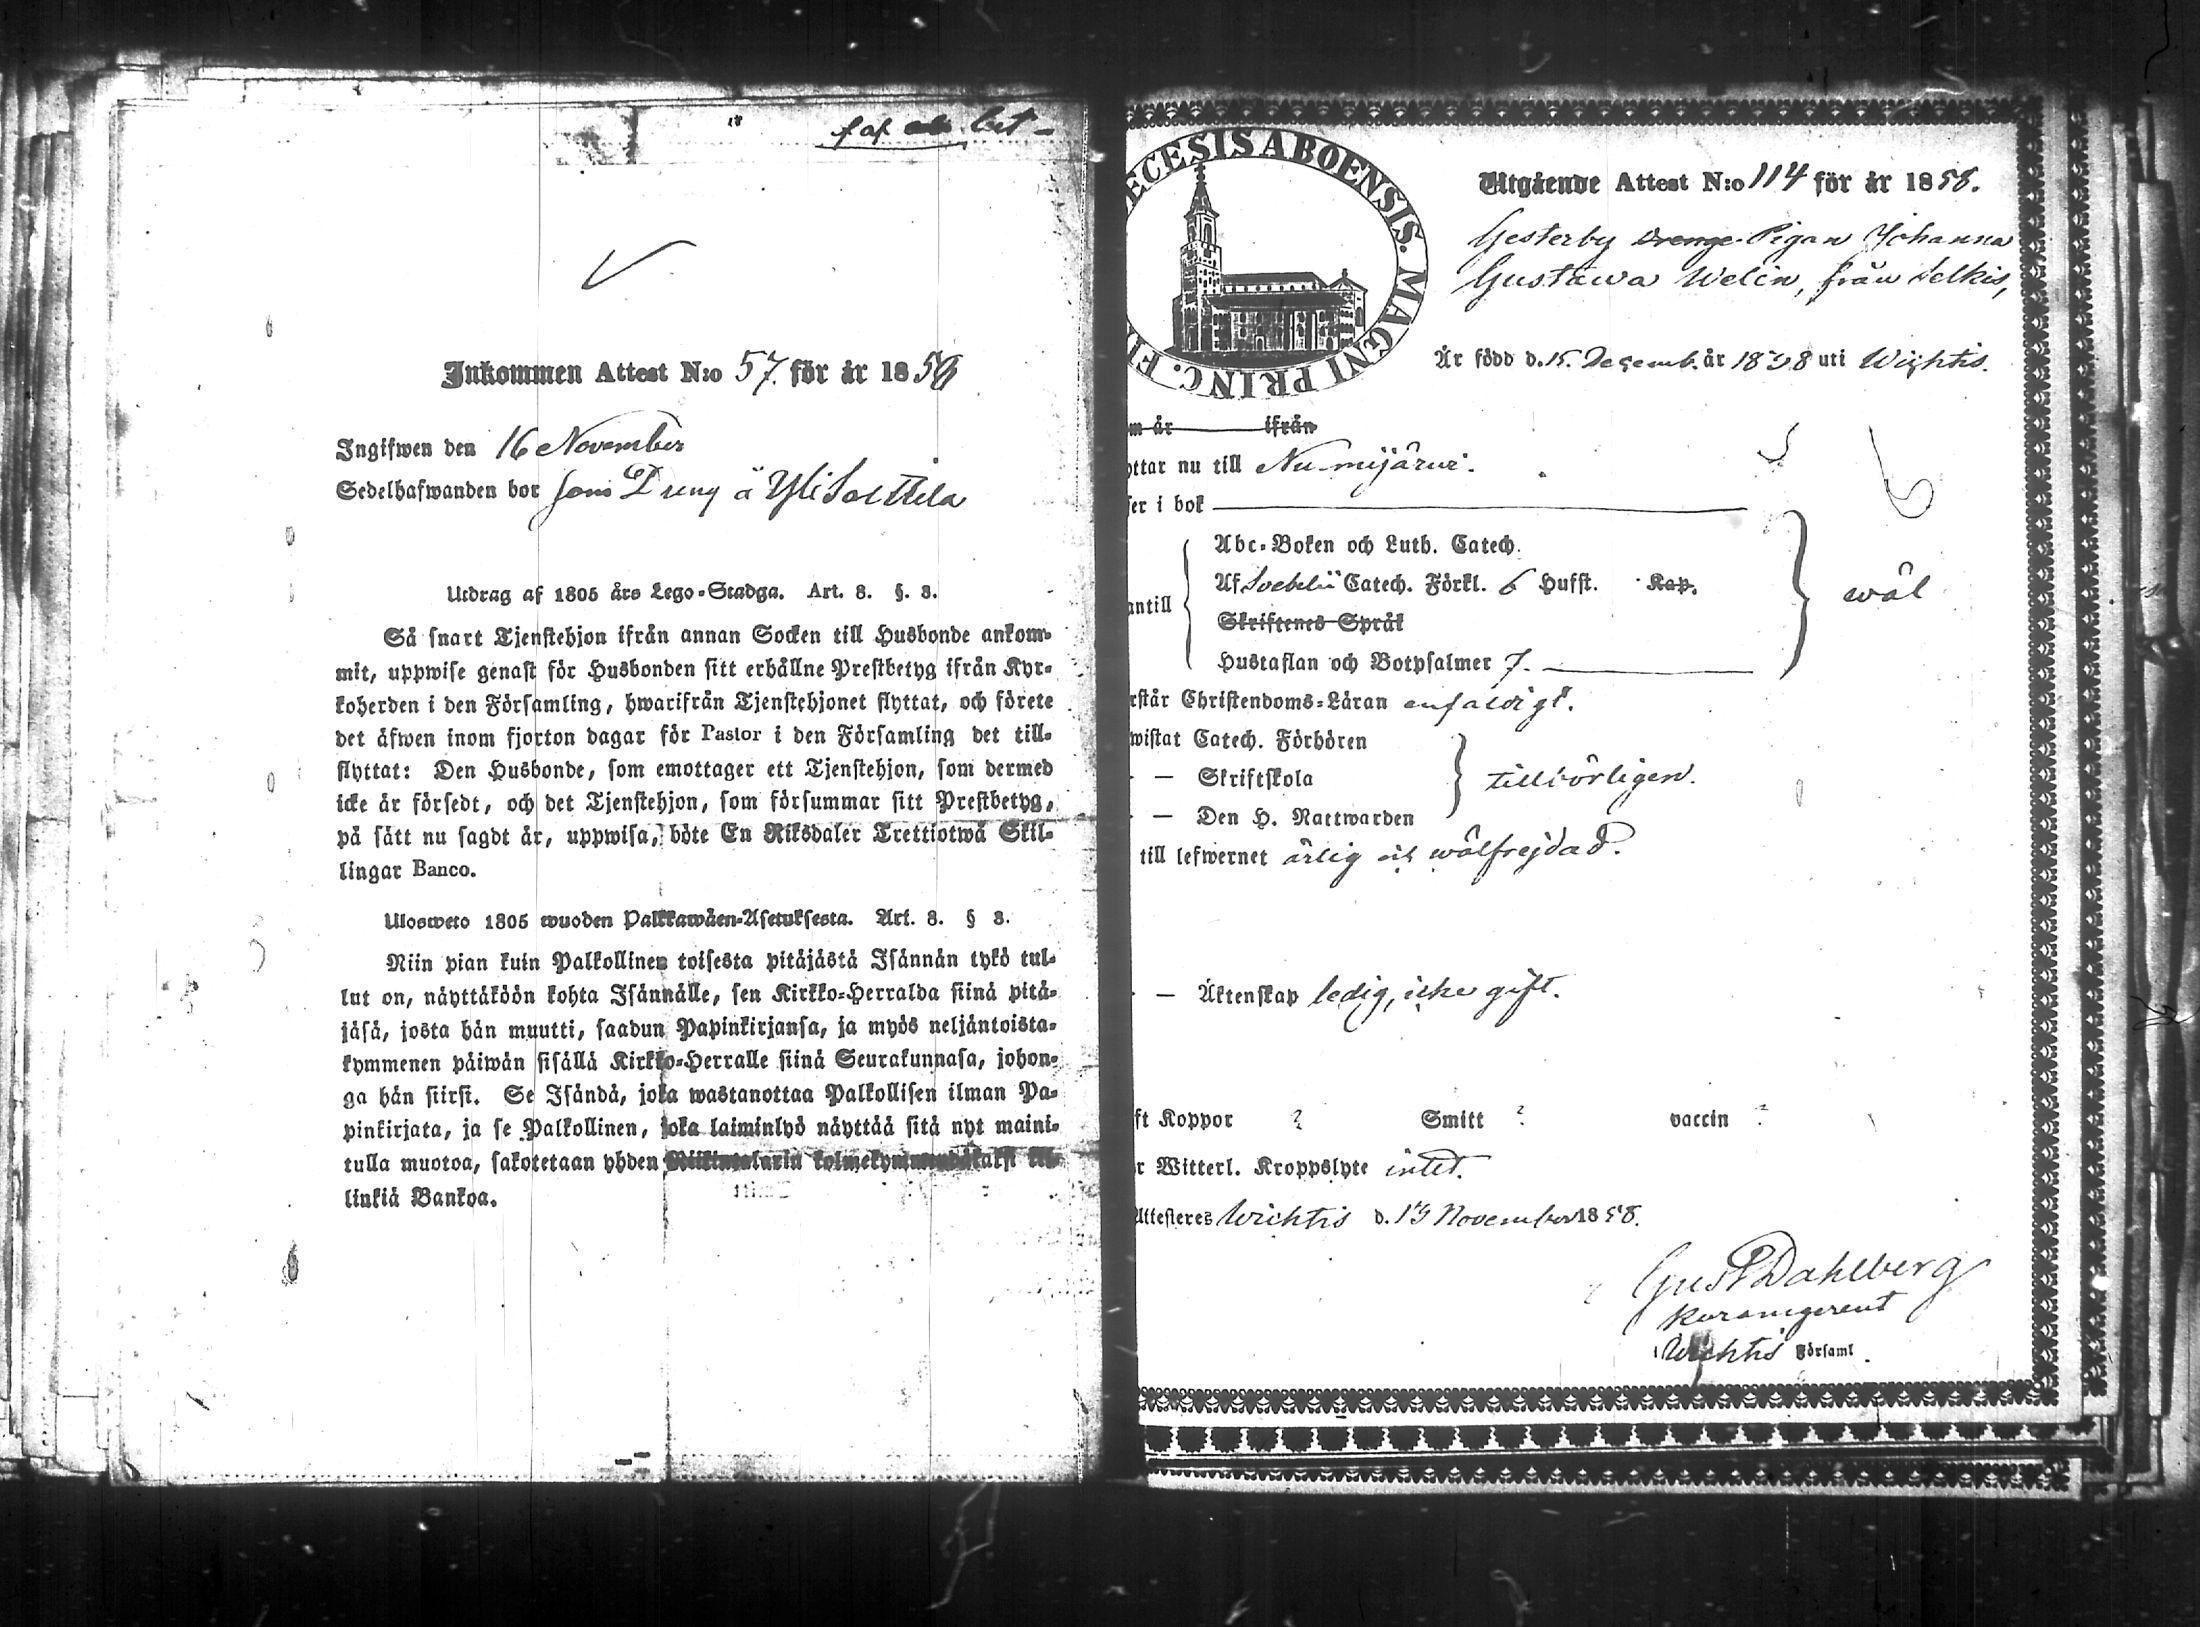 Inkommen Attest N:o 57. för år 1858
Ingifwen den 16 November
Sedelhafwanden bor som Dreng å Yli
Utdrag af 1805 års Lego-Stadga. Art. 8. §. 3.
Så snart Tjenstehjon ifrån annan Socken till Husbonde ankom-
mit, uppwise genast för Husbonden sitt erhållne Prestbetyg ifrån Kyr-
koherden i den Församling, hwarifrån Tjenstehjonet flyttat, och förete
det äfwen inom fjorton dagar för Pastor i den Församling det till-
flyttat: Den Husbonde, som emottager ett Tjenstehjon, som dermed
icke är försedt, och det Tjenstehjon, som försummar sitt Prestbetyg,
på sätt nu sagdt är, uppwisa, böte En Riksdaler Trettiotwå Skil-
lingar Banco.
Ulosweto 1805 wuoden Palkkawäen-Asetuksesta. Art. 8. § 3.
Niin pian kuin Palkollinen toisesta pitäjästä Isännän tykö tul-
lut on, näyttäköön kohta Isännälle, sen Kirkko-Herralda siinä pitä-
jäsä, josta hän muutti, saadun Papinkirjansa, ja myös neljäntoista-
kymmenen päiwän sisällä Kirkko-Herralle siinä Seurakunnasa, johon-
ga hän siirsi. Se Isändä, joka wastanottaa Palkollisen ilman Pa-
pinkirjata, ja se Palkollinen, joka laiminlyö näyttää sitä nyt maini-
tulla muotoa, sakotetaan yhden Riikintalarin kolmekymmendäkaksi kil-
linkiä Bankoa.
ECESIS ABOENSIS. MAGNI PRINC. FI
Utgående Attest N:o 114 för år 1858.
Gesterby Drenge Pigan Johanna
Gustawa Welin, från Selkis,
Är född d. 15. Decemb. år 1838 uti Wichtis.
m år ifrån
ottar nu till Nurmijärwi.
ser i bok
Abc-Boken och Luth. Catech.
Af Swebelii Catech. Förkl. 6 Hufst. Kap.
antill
wäl
Skriftenes Språk
Hustaflan och Botpsalmer 7.
rstår Christendoms-Läran enfaldigt.
wistat Catech. Förhören
— Skriftskola
tillbörligen.
— Den H. Nattwarden
till lefwernet ärlig och wälfrejdad.
— Äktenskap ledig, icke gift.
ft Koppor ? Smitt ? vaccin ?
r Witterl. Kroppslyte intet.
Attesteres Wichtis d. 13 November 1858.
Gust Dahlberg
Wichtis Församl.